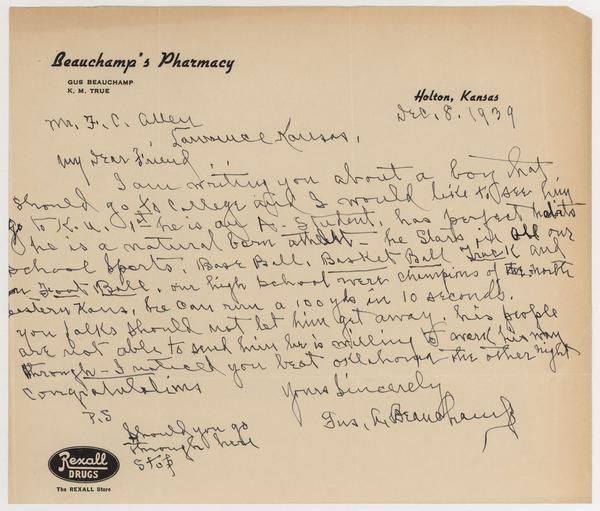 Beauchamp's Pharmacy
GUS BEAUCHAMP
K. M. TRUE
Holton, Kansas
Dec. 8. 1939
Mr. F. C. Allen
Lawrence Kansas,
My Dear Friend..
I am writing you about a boy that
should go to college and I would like to see him
go to K.U. 1st he is an A. Student, has perfect habits
he is a natural born athlet - he Stars in all our
school Sports, Base Ball. Basket Ball Track and
on Foot Ball. our high School were champions of the north
eastern Kans, he can run a 100 yds in 10 seconds.
you folks should not let him get away. his people
are not able to send him he is willing to work his way
through - I noticed you beat oklahoma the other night
Congratulations
Yours Sincerely
Gus. A. Beauchamp
P.S
Should you go
through here
Stop
Rexall
DRUGS
The REXALL Store